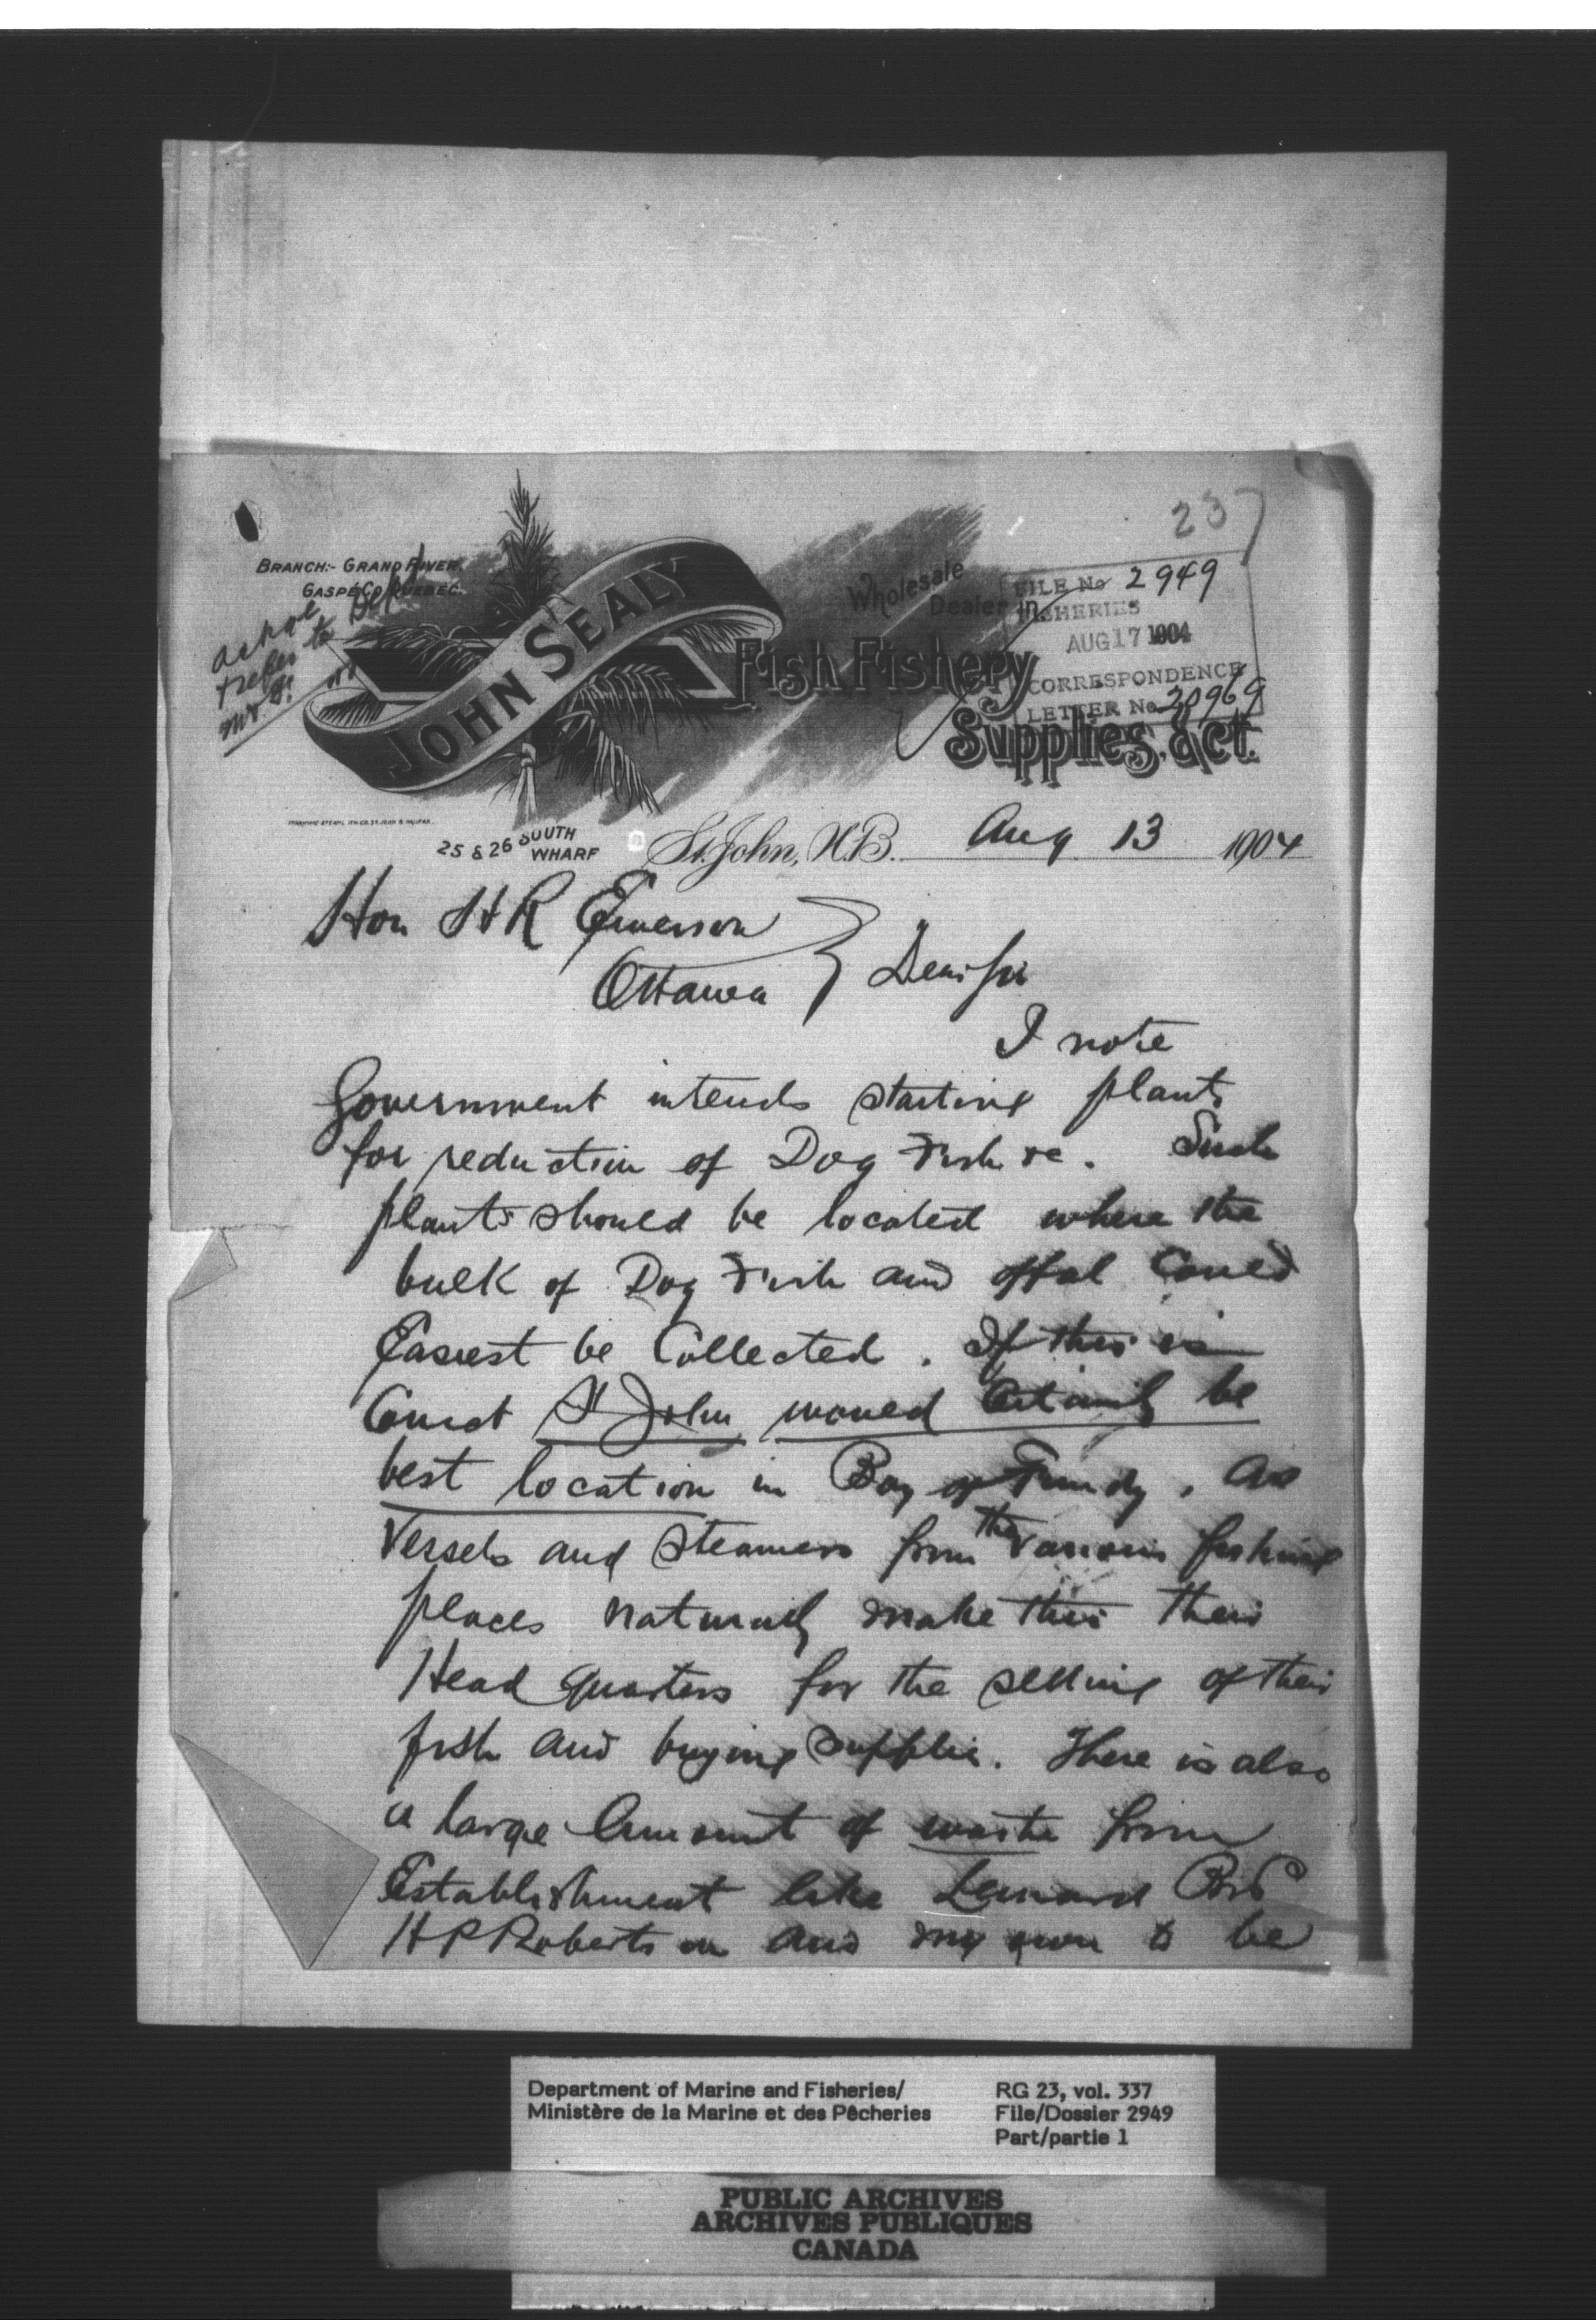 237
BRANCH:- GRAND RIVER,
GASPÉ CO. QUEBEC.
refer to Dept
JOHN SEALY
Wholesale
Dealer in
Fish Fishery
Supplies. &ct.
FILE No 2949
FISHERIES
AUG 17 1904
CORRESPONDENCE
LETTER No 20969
25 & 26 SOUTH
WHARF
St. John, N.B. Aug 13 1904
Hon H R Emerson
Ottawa } Dear Sir
I note
Government intends starting plants
for reduction of Dog Fish &c. Such
plants should be located where the
bulk of Dog Fish and offal Could
Easiest be Collected. If this is
Correct St John would Certainly be
best location in Bay of Fundy, as
Vessels and Steamers from the various fishing
places naturally make this their
Head quarters for the selling of their
fish and buying supplies. There is also
a large Amount of waste from
Establishment like Leonard Bros
H P Robertson and my own to be
Department of Marine and Fisheries/
Ministère de la Marine et des Pêcheries
RG 23, vol. 337
File/Dossier 2949
Part/partie 1
PUBLIC ARCHIVES
ARCHIVES PUBLIQUES
CANADA